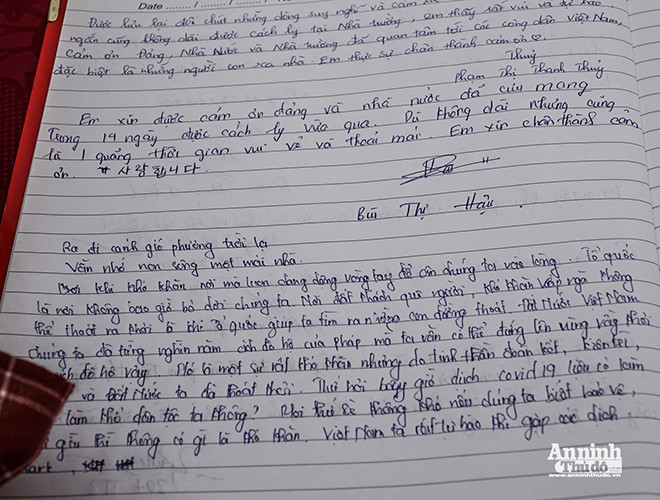 Date ....... / ....... / .......
Được hôm lại đôi chút những dòng suy nghĩ và cảm
ngắn cũng không dài được cách ly tại Nhà trường, em thấy rất vui và tự hào
Cảm ơn Đảng, Nhà Nước và Nhà trường đã quan tâm tới các công dân Việt Nam,
đặc biệt là những người con xa nhà. Em thực sự chân thành cảm ơn
Thuỷ
Phạm Thị Thanh Thuỷ
Em xin được cảm ơn đảng và nhà nước đã cưu mang
Trong 14 ngày được cách ly vừa qua. Dù không dài nhưng cũng
là 1 quãng thời gian vui vẻ và thoải mái. Em xin chân thành cảm
ơn. 사랑합니다.
Bùi Thị Hậu.
Ra đi canh gió phương trời lạ
Vẫn nhớ non sông một mái nhà.
khi khó khăn nơi mà luôn dang dòng vòng tay để ôn chúng ta vào lòng. Tổ quốc
là nơi không bao giờ bỏ dơi chúng ta. Nơi đất khách quê người, khó khăn vấp ngã không
thể thoát ra khỏi thì Tổ quốc giúp ta tìm ra những con đường thoát. Đất Nước Việt Nam
chúng ta đã từng nghìn năm đô hộ của pháp mà ta vẫn có thể đứng lên vững vàng khỏi
ách đô hộ này. Đó là một sự rất khó khăn nhưng do tinh thần đoàn kết, kiên
và Đất Nước ta đã thoát khỏi. Thử hỏi bây giờ dịch covid 19 liệu có làm
làm khó dân tộc ta không? Mọi thứ sẽ không khó nếu chúng ta biết bảo vệ,
giữ gìn thì không có gì là khó khăn. Việt Nam ta rất tự hào khi gặp các dịch
An ninh
Thủ đô
www.anninhthudo.vn